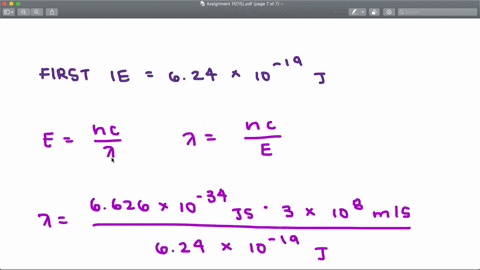 Assignment 15(15).pdf (page 7 of 7)
FIRST IE = 6.24 × 10⁻¹⁹ J
E = hc / λ    λ = hc / E
λ = 6.626 × 10⁻³⁴ JS · 3 × 10⁸ m/s / 6.24 × 10⁻¹⁹ J